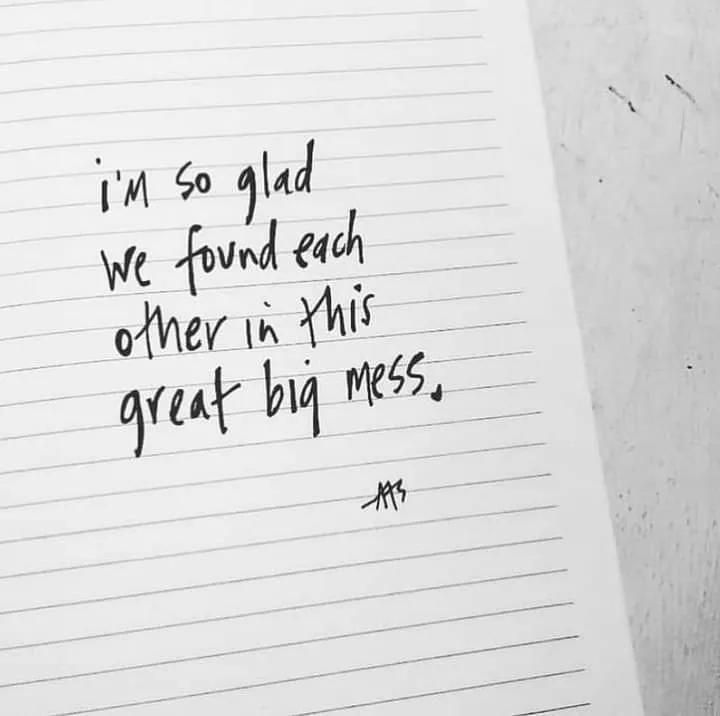 i'm so glad
we found each
other in this
great big mess.